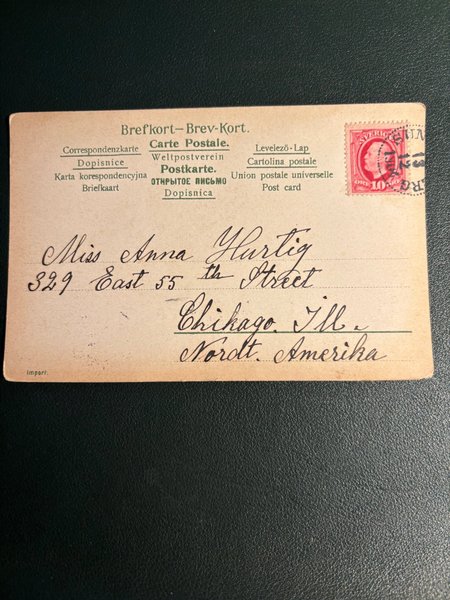 Brefkort–Brev-Kort.
Correspondenzkarte
Carte Postale.
Levelező-Lap
Dopisnice
Weltpostverein
Cartolina postale
Karta korespondencyjna
Postkarte.
Union postale universelle
Briefkaart
ОТКРЫТОЕ ПИСЬМО
Post card
Dopisnica
10
Miss Anna Hurtig
329 East 55 th Street
Chikago. Ill.
Nordt. Amerika
Import.